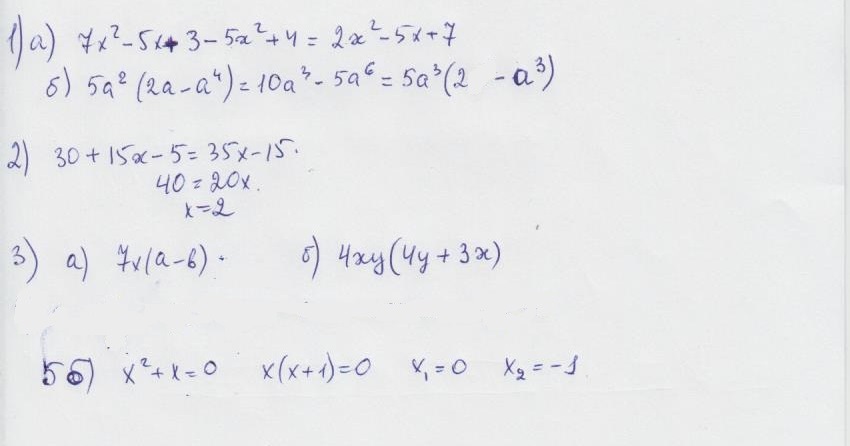 1) а) 7x² - 5x + 3 - 5x² + 4 = 2x² - 5x + 7
б) 5a² (2a - a⁴) = 10a³ - 5a⁶ = 5a³(2 - a³)
2) 30 + 15x - 5 = 35x - 15.
40 = 20x.
x = 2
3) а) 7x(a - b). б) 4xy(4y + 3x)
5б) x² + x = 0 x(x + 1) = 0 x₁ = 0 x₂ = -1